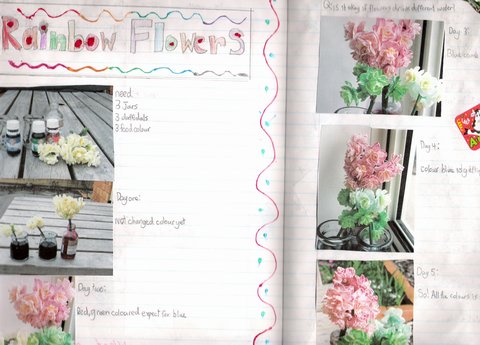 Rainbow Flowers
need
3 Jars
3 daffodils
3 food colour
Day one:
not changed colour yet
Day two:
Red, green coloured expect for blue
Q: is it okay if flowers drinks different water?
Day 3:
Day 4:
colour blue slightly
Day 5:
So! All the colours is
A